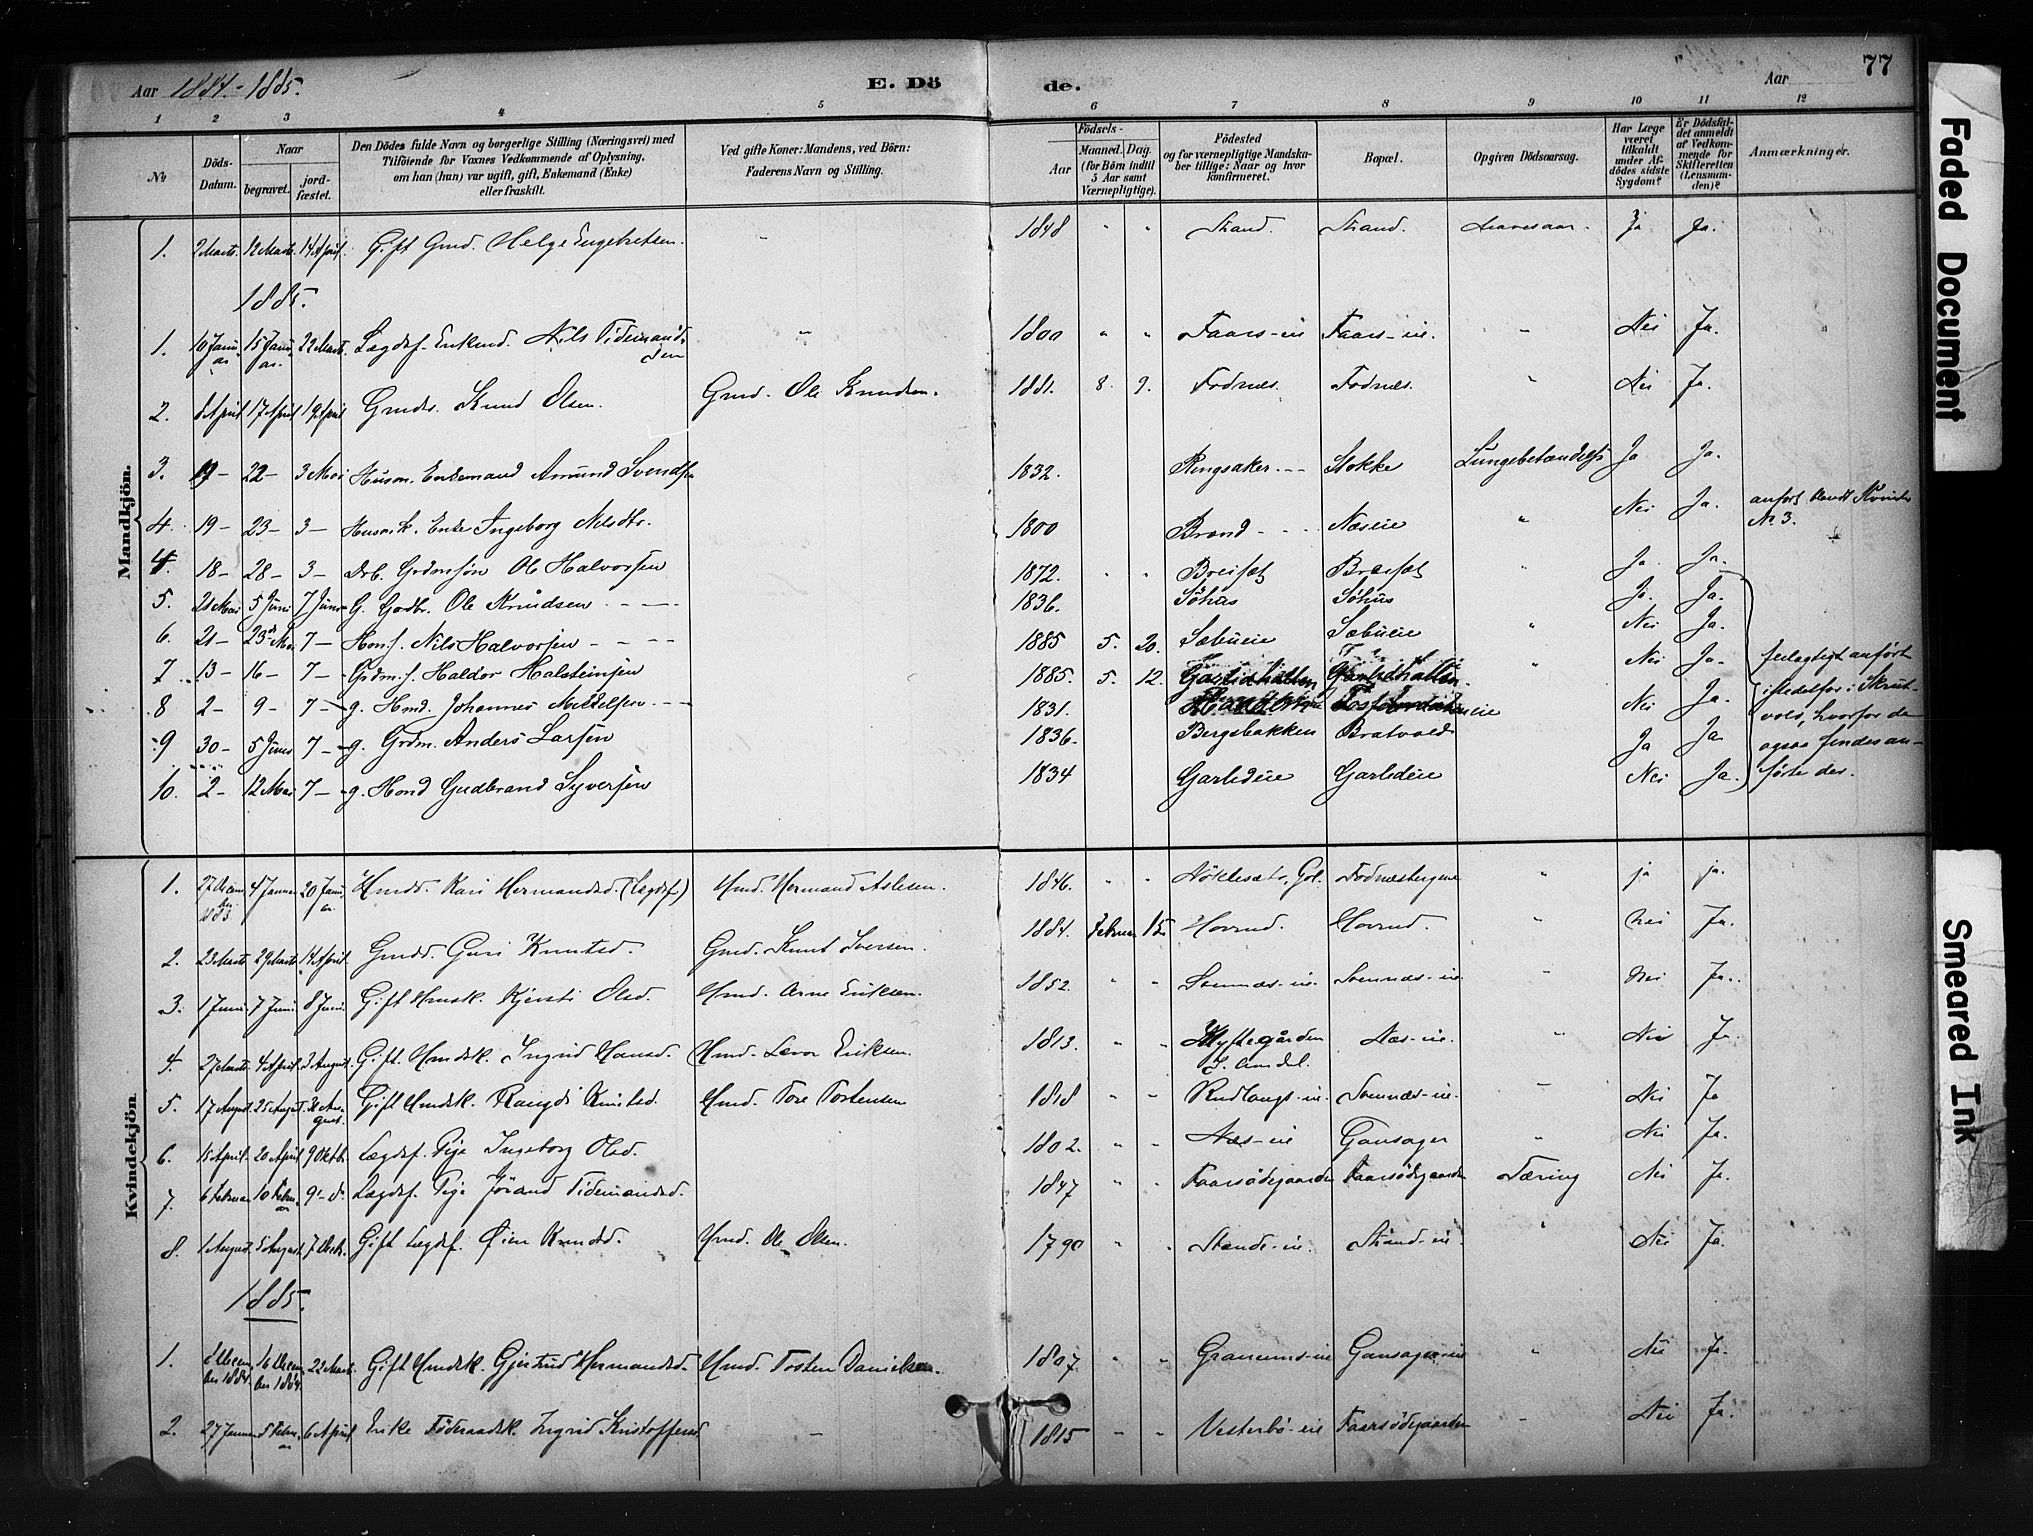 Aar 1884-1885.
E. Dö de.
Aar
77
1 2 3 4 5 6 7 8 9 10 11 12
No
Döds-Datum.
Naar
begravet.
jordfæstet.
Den Dödes fulde Navn og borgerlige Stilling (Næringsvei) med
Tilföiende for Voxnes Vedkommende af Oplysning,
om han (hun) var ugift, gift, Enkemand (Enke)
eller fraskilt.
Ved gifte Koner: Mandens, ved Börn:
Faderens Navn og Stilling.
Födsels-
Aar
Maaned. Dag.
(for Börn indtil
5 Aar samt
Værnepligtige).
Födested
og for værnepligtige Mandska-
ber tillige: Naar og hvor
konfirmeret.
Bopæl.
Opgiven Dödsaarsag.
Har Læge
været
tilkaldt
under Af-
dödes sidste
Sygdom?
Er Dödsfal-
det anmeldt
af Vedkom-
mende for
Skifteretten
(Lensman-
den)?
Anmærkninger.
Mandkjön.
1. 2 Marts. 12 Marts. 14 April. Gift Gmd. Helge Engebretsen. 1848 " " Strand. Strand. Ja Ja.
1885.
1. 10 Januar 15 Januar. 22 Marts. Lægdsl. Enkemd. Nils Tidemandsen " 1800 " " Faars-eie Faars-eie. " Nei Ja.
2. 8 April 17 April 19 April Gmds. Knud Olsen. Gmd. Ole Knudsen. 1881. 8. 9. Fodnes. Fodnes. " Nei Ja.
3. 19- 22- 3 Mai Husm. Enkemand Amund Svendsen 1832. Ringsaker. -- Stokke Lungebetændelse Ja Ja.
4. 19- 23- 3- Husmk. Enke Ingeborg Nilsdtr. 1800 Brand - - - Næseie " Nei Ja. anført blandt Kvinder No 3.
4. 18- 28- 3- Drb. Grdmsøn Ole Halvorsen 1872. " " Breiset Breiset " Ja. Ja.
5. 21 Mai 5 Juni 7 Juni G. Gordbr. Ole Knudsen - - - 1836. Söhus Söhus Ja. Ja.
6. 21- 23d Mai 7- Hms. Nils Halvorsen - - - 1885 5. 20. Sæbueie Sæbueie " Nei Ja.
7. 13- 16- 7- Grdm.s. Haldor Halsteinsen 1885. 5. 12. Garlidhatten Garlidhatten. " Nei Ja.
8 2- 9- 7- g. Hmd. Johannes - - - 1831. Nei Ja.
9 30- 5 Juni 7- g. Grdm. Anders Larsen 1836. Bergsbakken Bratvold Ja Ja.
10. 2- 12 Mai 7- g. Hmd Gudbrand Syversen 1834 Garlideie Garlideie Nei Ja.
feilagtigt anført
istedetfor i Skrut-
vold, hvorfor de
ogsaa findes an-
førte der.
Kvindekjön.
1. 27 Decem 1883 4 Januar 20 Januar Hmds. Kari Hermandsd. (Lægdsl.) Hmd. Hermand Aslesen. 1846. " " Gol. Fodnesbergene " ja ja.
2. 23 Marts 29 Marts 14 April. Gmds. Guri Knutsd. Gmd. Knut Iversen. 1884. Februar 15 Hovrud. Hovrud. " nei Ja.
3. 1 Juni. 7 Juni. 8 Juni. Gift Hmsk. Kjersti Olsd. Hmd. Arne Eriksen. 1852. " " Somnæs-eie. Somnæs-eie. " Nei Ja.
4. 27 Marts 4 April. 3 August. Gift Hmdsk. Ingrid Hansd. Hmd. Levor Eriksen. 1813. " " Hyttegården S. Aurdal. Næs-eie. " Nei Ja.
5. 17 August. 25 August. 31 August. Gift Hmdsk. Rangdi Knutsd. Hmd. Tore Torstensen 1818 " " Somnæs-eie. " Nei Ja
6. 18 April. 20 April. 9 Oktb. Lægdsl. Pige Ingeborg Olsd. 1802. " " Næs-eie Gansager " Nei Ja.
7. 6 Februar 10 Februar 9- do. Lægdsl. Pige Jørand Tidemandsd. 1847 " " Faarsødegaarden Faarsødegaarden Tæring Nei Ja.
8. 1 August. 5 August. 7 Decb. Gift Lægdsl. Knudsd. Hmd. Ole Olsen. 1790 " " Strande-eie. Strand-eie. " Nei Ja.
1885.
1. 8 December 1884. 16 December 1884. 22 Marts. Gift Hmdsk. Gjertrud Hermandsd. Hmd. Torsten Danielsen. 1807 " " Granums-eie Gansager-eie " Nei Ja.
2. 27 Januar 5 Februar 6 April Enke Föderaadsk. Ingrid Kristoffersd - 1815 " " Vesterbö-eie Faarsødegaarden " Nei Ja.
Faded Document
Smeared Ink